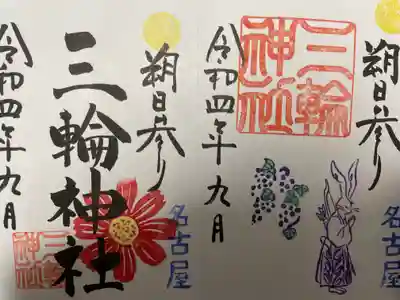 朔日参り
三輪神社
令和四年九月
名古屋
三輪神社
朔日参り
三輪神社
令和四年九月
名古屋